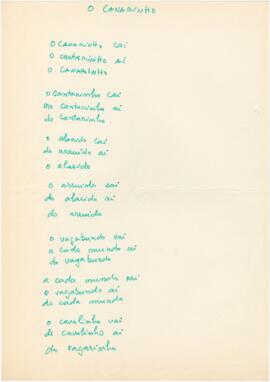 O CANARINHO
O CANARINHO cai
o cantarinho ai
o CANARINHO
o cantarinho cai
ao cantarinho ai
do cantarinho
o alarido cai
do arruido ai
o alarido
o arruido sai
do alarido ai
do arruido
o vagabundo vai
a cada mundo ai
do vagabundo
a cada mundo sai
o vagabundo ai
de cada mundo
o cavalinho vai
de cavalinho ai
do vagarinho